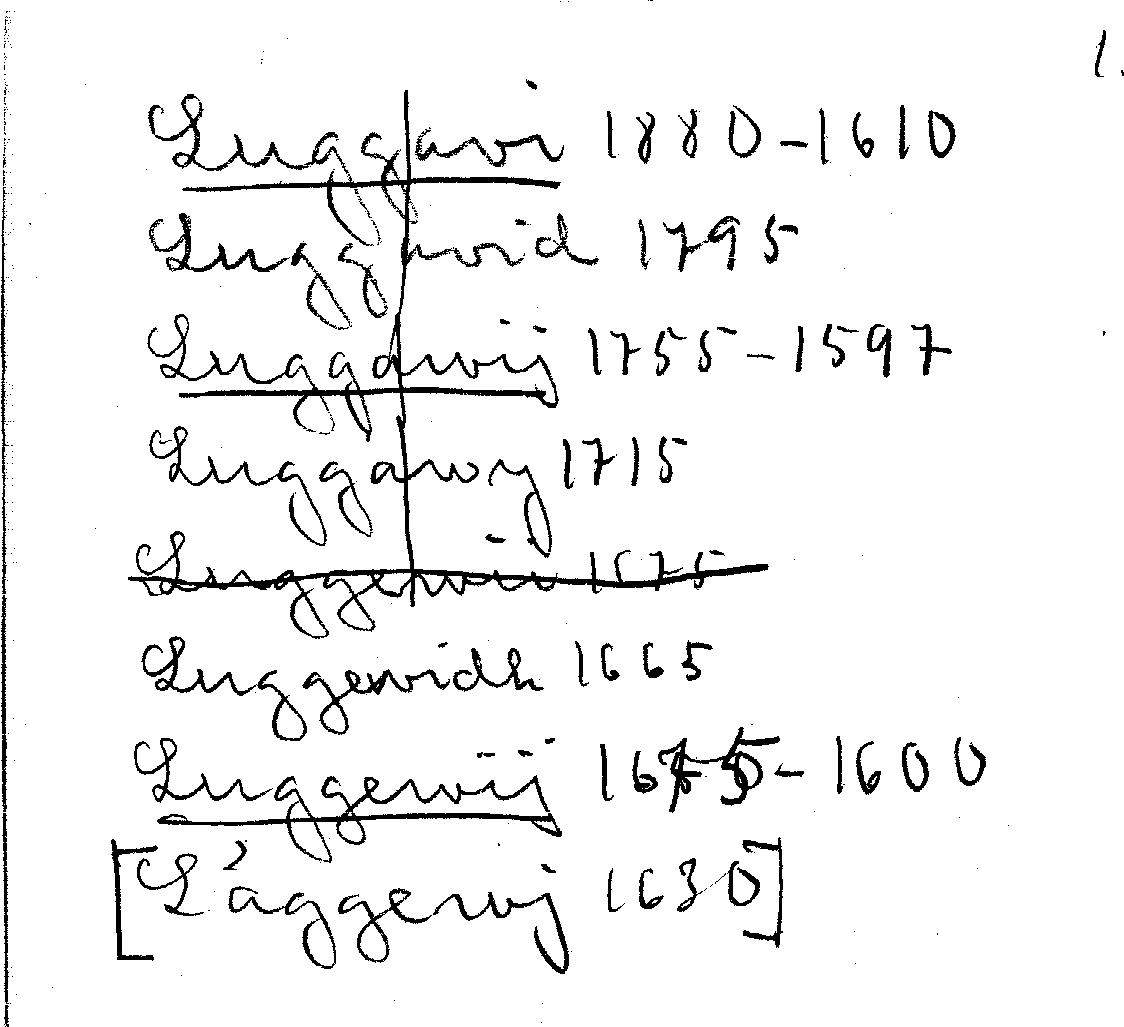 1.
Luggavi 1880-1610
Luggavid 1795
Luggawij 1755-1597
Luggawy 1715
Luggewidh 1665
Luggewij 1675-1600
[Låggewj 1630]